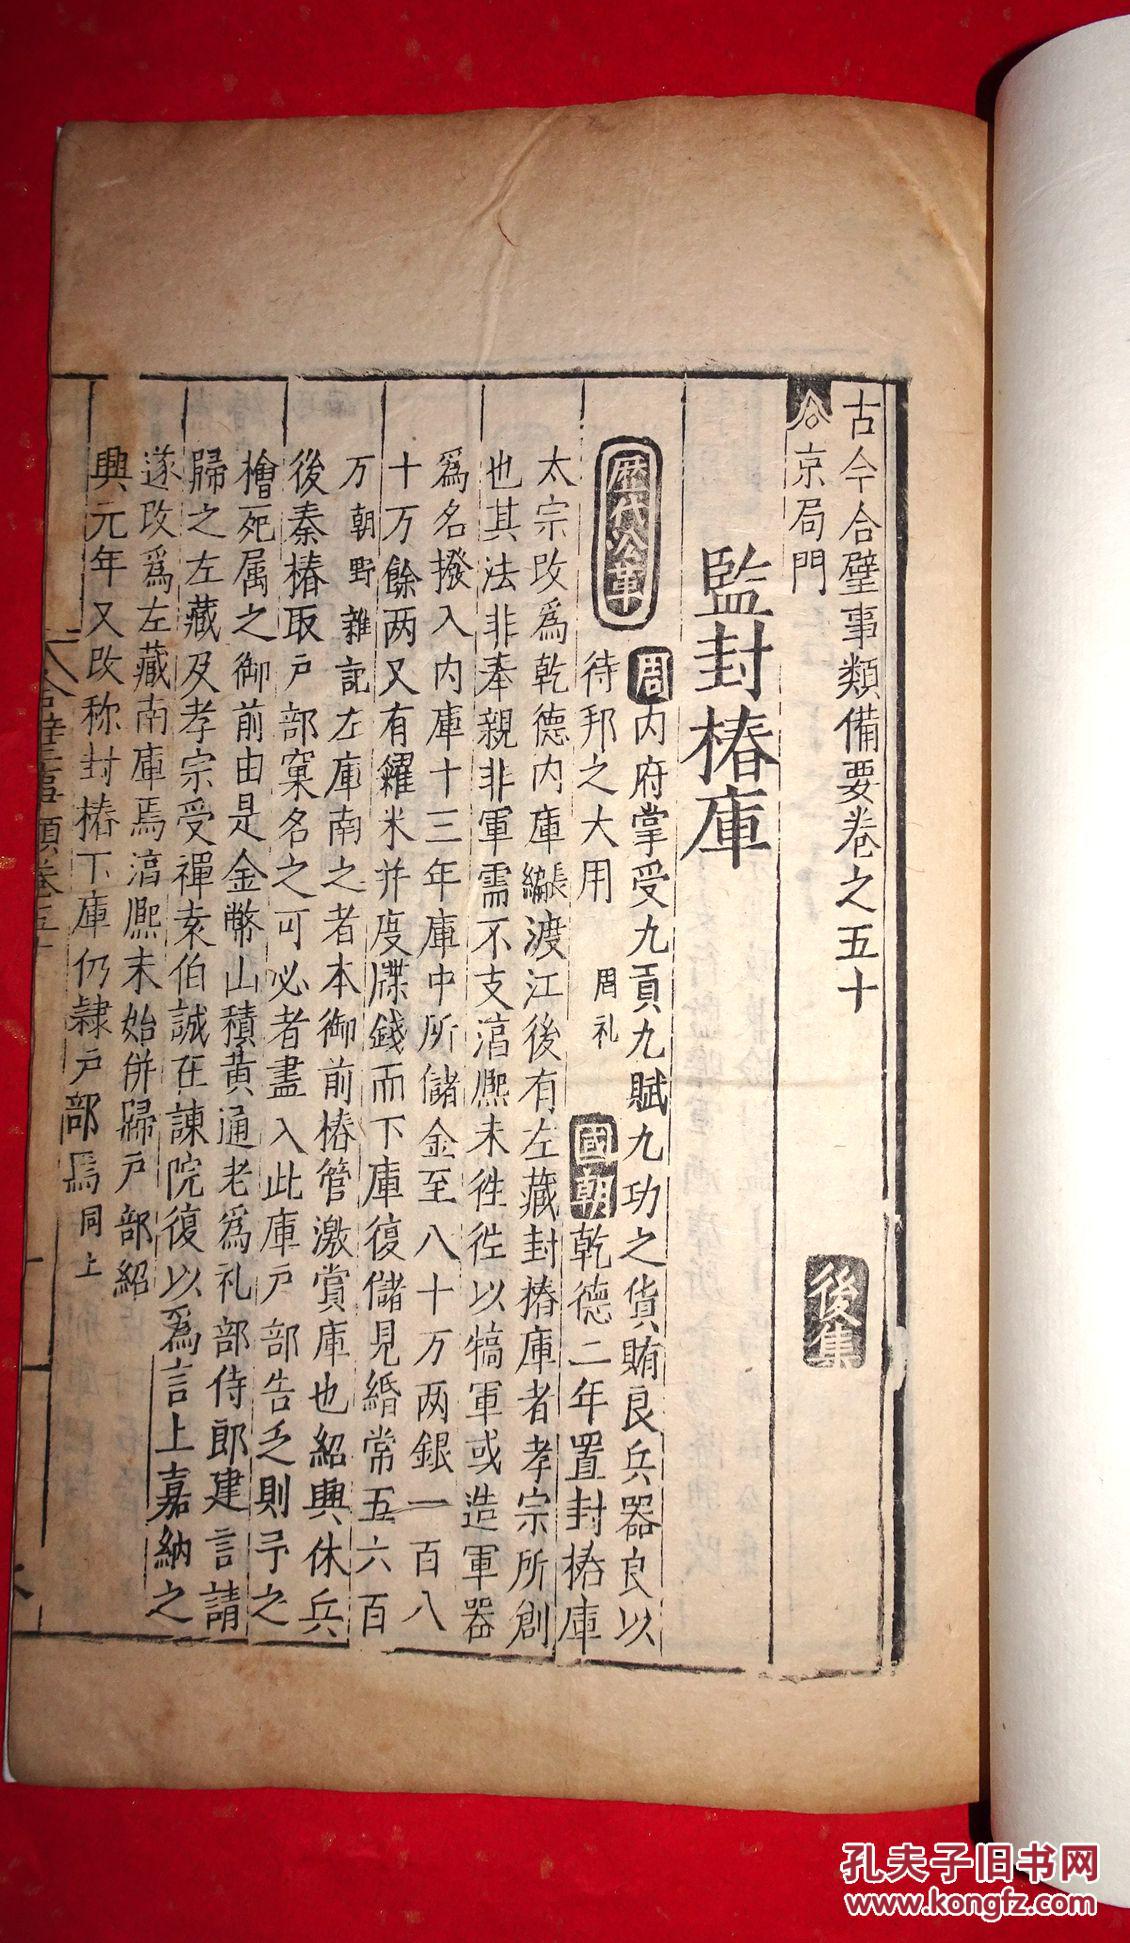 古今合璧事類備要卷之五十
後集
京局門
監封樁庫
歷代沿革
周内府掌受九貢九賦九功之貨賄良兵器良以
待邦之大用 周礼 國朝乾德二年置封樁庫
太宗改爲乾德内庫長編渡江後有左藏封樁庫者孝宗所創
也其法非奉親非軍需不支淳熈末徃徃以犒軍或造軍器
爲名撥入内庫十三年庫中所儲金至八十万两銀一百八
十万餘两又有糴米并度牒錢而下庫復儲見緡常五六百
万 朝野雜記左庫南之者本御前樁管激賞庫也紹興休兵
後秦樁取户部窠名之可必者盡入此庫户部告乏則予之
檜死属之御前由是金幣山積黄通老爲礼部侍郎建言請
歸之左藏及孝宗受禪袁伯誠在諫院復以爲言上嘉納之
遂改爲左藏南庫焉淳熈末始併歸户部紹
興元年又改称封樁下庫仍隸户部焉 同上
合璧事類卷五十
孔夫子旧书网
www.kongfz.com